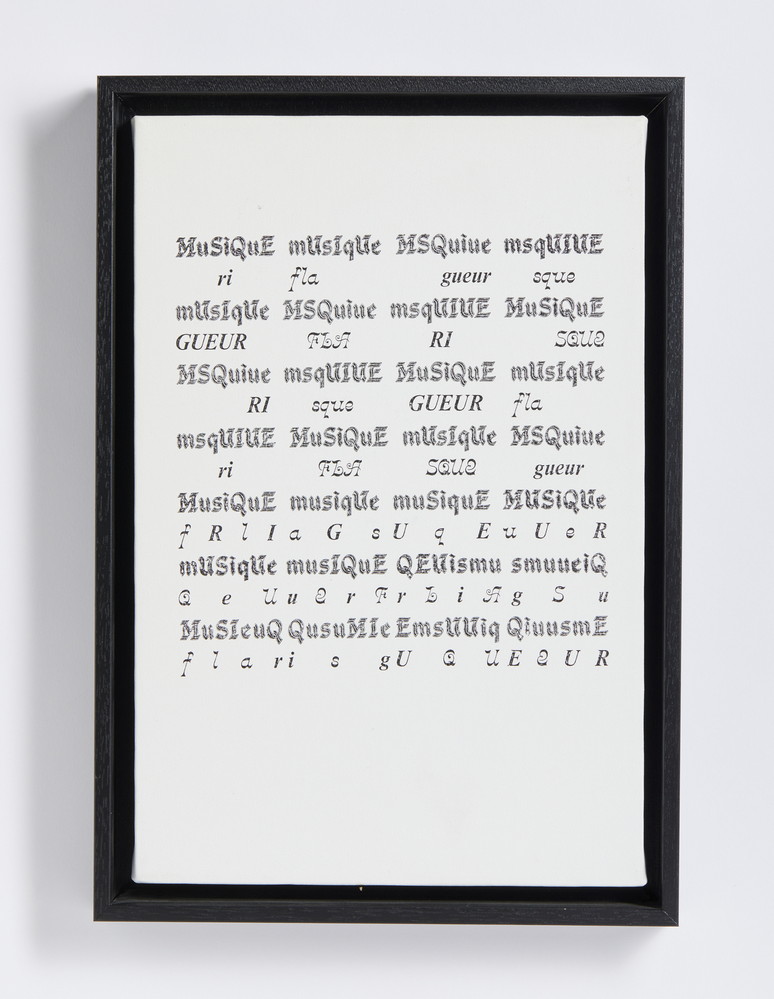 MuSiQuE mUsIqUe MSQuiue msqUIUE
ri fla gueur sque
mUsIqUe MSQuiue msqUIUE MuSiQuE
GUEUR FLA RI SQUE
MSQuiue msqUIUE MuSiQuE mUsIqUe
RI sque GUEUR fla
msqUIUE MuSiQuE mUsIqUe MSQuiue
ri FLA SQUE gueur
MusiQuE musiqUe muSiquE MUSiQUe
f R l I a G s U q E u U e R
mUSiqUe musIQuE QEUismu smuueiQ
Q e U u E r F r L i A g S u
MuSIeuQ QusuMIe EmsUUiq QiuusmE
f l a r i s g U Q U E E U R